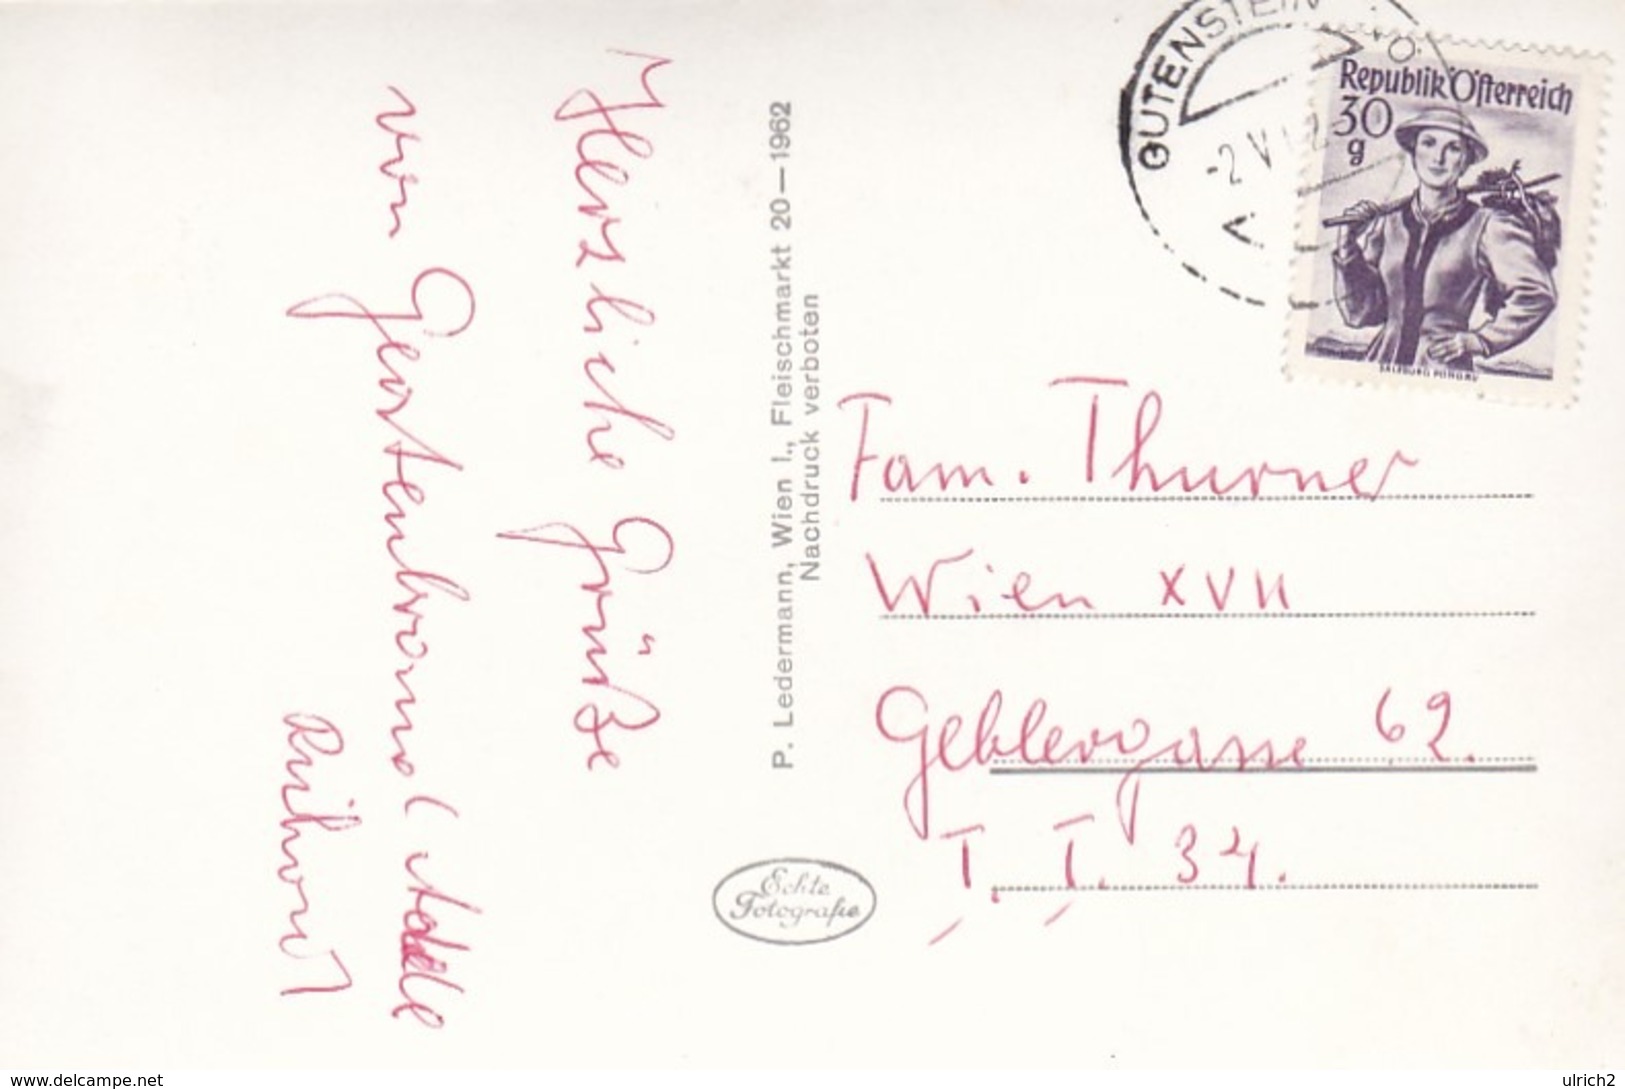 Herzliche Grüße
von
GUTENSTEIN, NÖ.
-2.V.
Republik Österreich
30
g
SALZBURG PONGAU
P. Ledermann, Wien I., Fleischmarkt 20—1962
Nachdruck verboten
Echte
Fotografie
Fam. Thurner
Wien XVII
Geblergasse 62.
T. T. 34.
www.delcampe.net
ulrich2